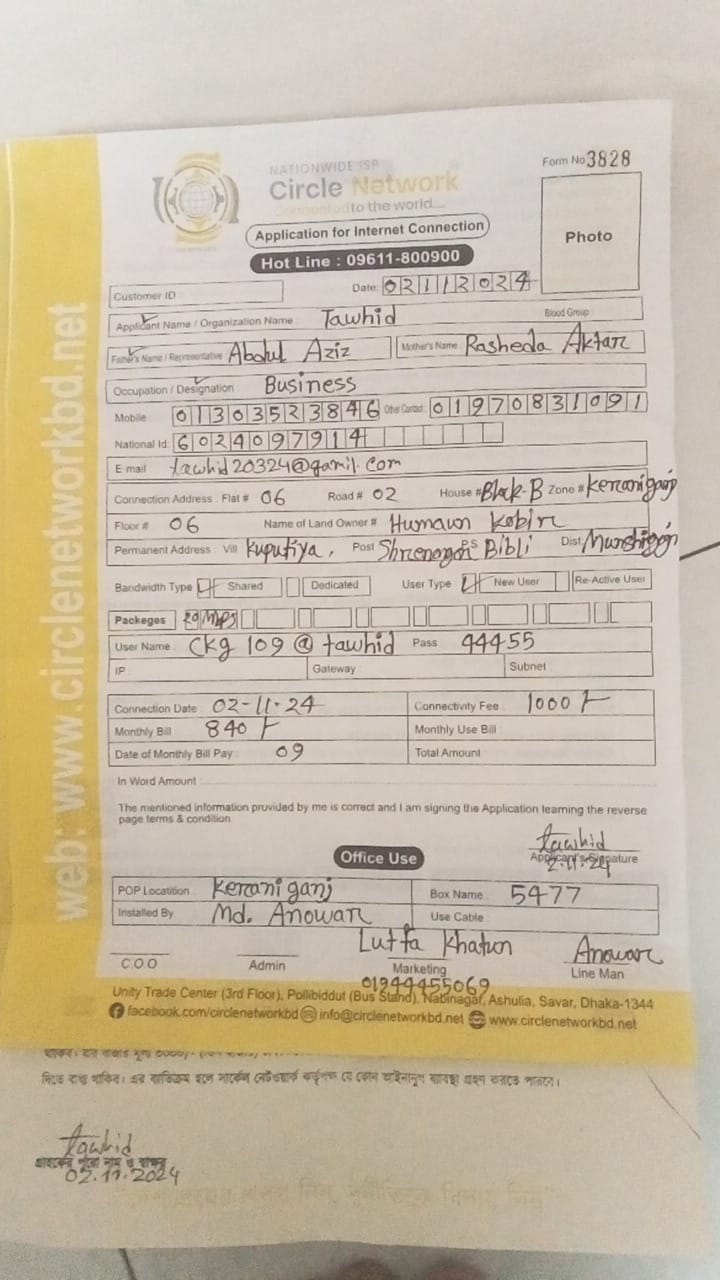 NATIONWIDE ISP
Circle Network
Connected to the world....
Form No 3828
Photo
Application for Internet Connection
Hot Line : 09611-800900
Customer ID
Date: 02112024
Applicant Name / Organization Name : Tawhid Blood Group
Father's Name / Representative Abdul Aziz Mother's Name Rasheda Aktar
Occupation / Designation Business
Mobile : 01303523846 Other Contact: 01970831091
National Id: 6024097914
E mail tawhid20324@gamil.com
Connection Address : Flat # 06 Road # 02 House # Block-B Zone # Keraniganj
Floor # 06 Name of Land Owner # Humaun Kobir
Permanent Address : Vill Kuputiya, Post PS Bibli Dist. Munshiganj
Bandwidth Type Shared Dedicated User Type New User Re-Active User
Packeges
User Name : Ckg 109 @ tawhid Pass 44455
IP Gateway Subnet
Connection Date : 02-11-24 Connectivity Fee : 1000/-
Monthly Bill 840/- Monthly Use Bill
Date of Monthly Bill Pay : 09 Total Amount
In Word Amount :
The mentioned information provided by me is correct and I am signing the Application learning the reverse
page terms & condition.
tawhid
Applicant's Signature
2.11.24
Office Use
POP Locatition Keraniganj Box Name : 5477
Installed By Md. Anowar Use Cable :
Lutfa Khatun Anowar
C.O.O Admin Marketing Line Man
01944455069
Unity Trade Center (3rd Floor), Pollibiddut (Bus Stand), Nabinagar, Ashulia, Savar, Dhaka-1344
facebook.com/circlenetworkbd info@circlenetworkbd.net www.circlenetworkbd.net
web: www.circlenetworkbd.net
দিতে বাধ্য থাকিব। এর ব্যতিক্রম হলে সার্কেল নেটওয়ার্ক কর্তৃপক্ষ যে কোন আইনানুগ ব্যবস্থা গ্রহণ করতে পারবে।
tawhid
02.11.2024